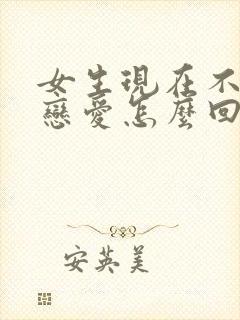 女生現在不
戀愛怎麼回
安英美